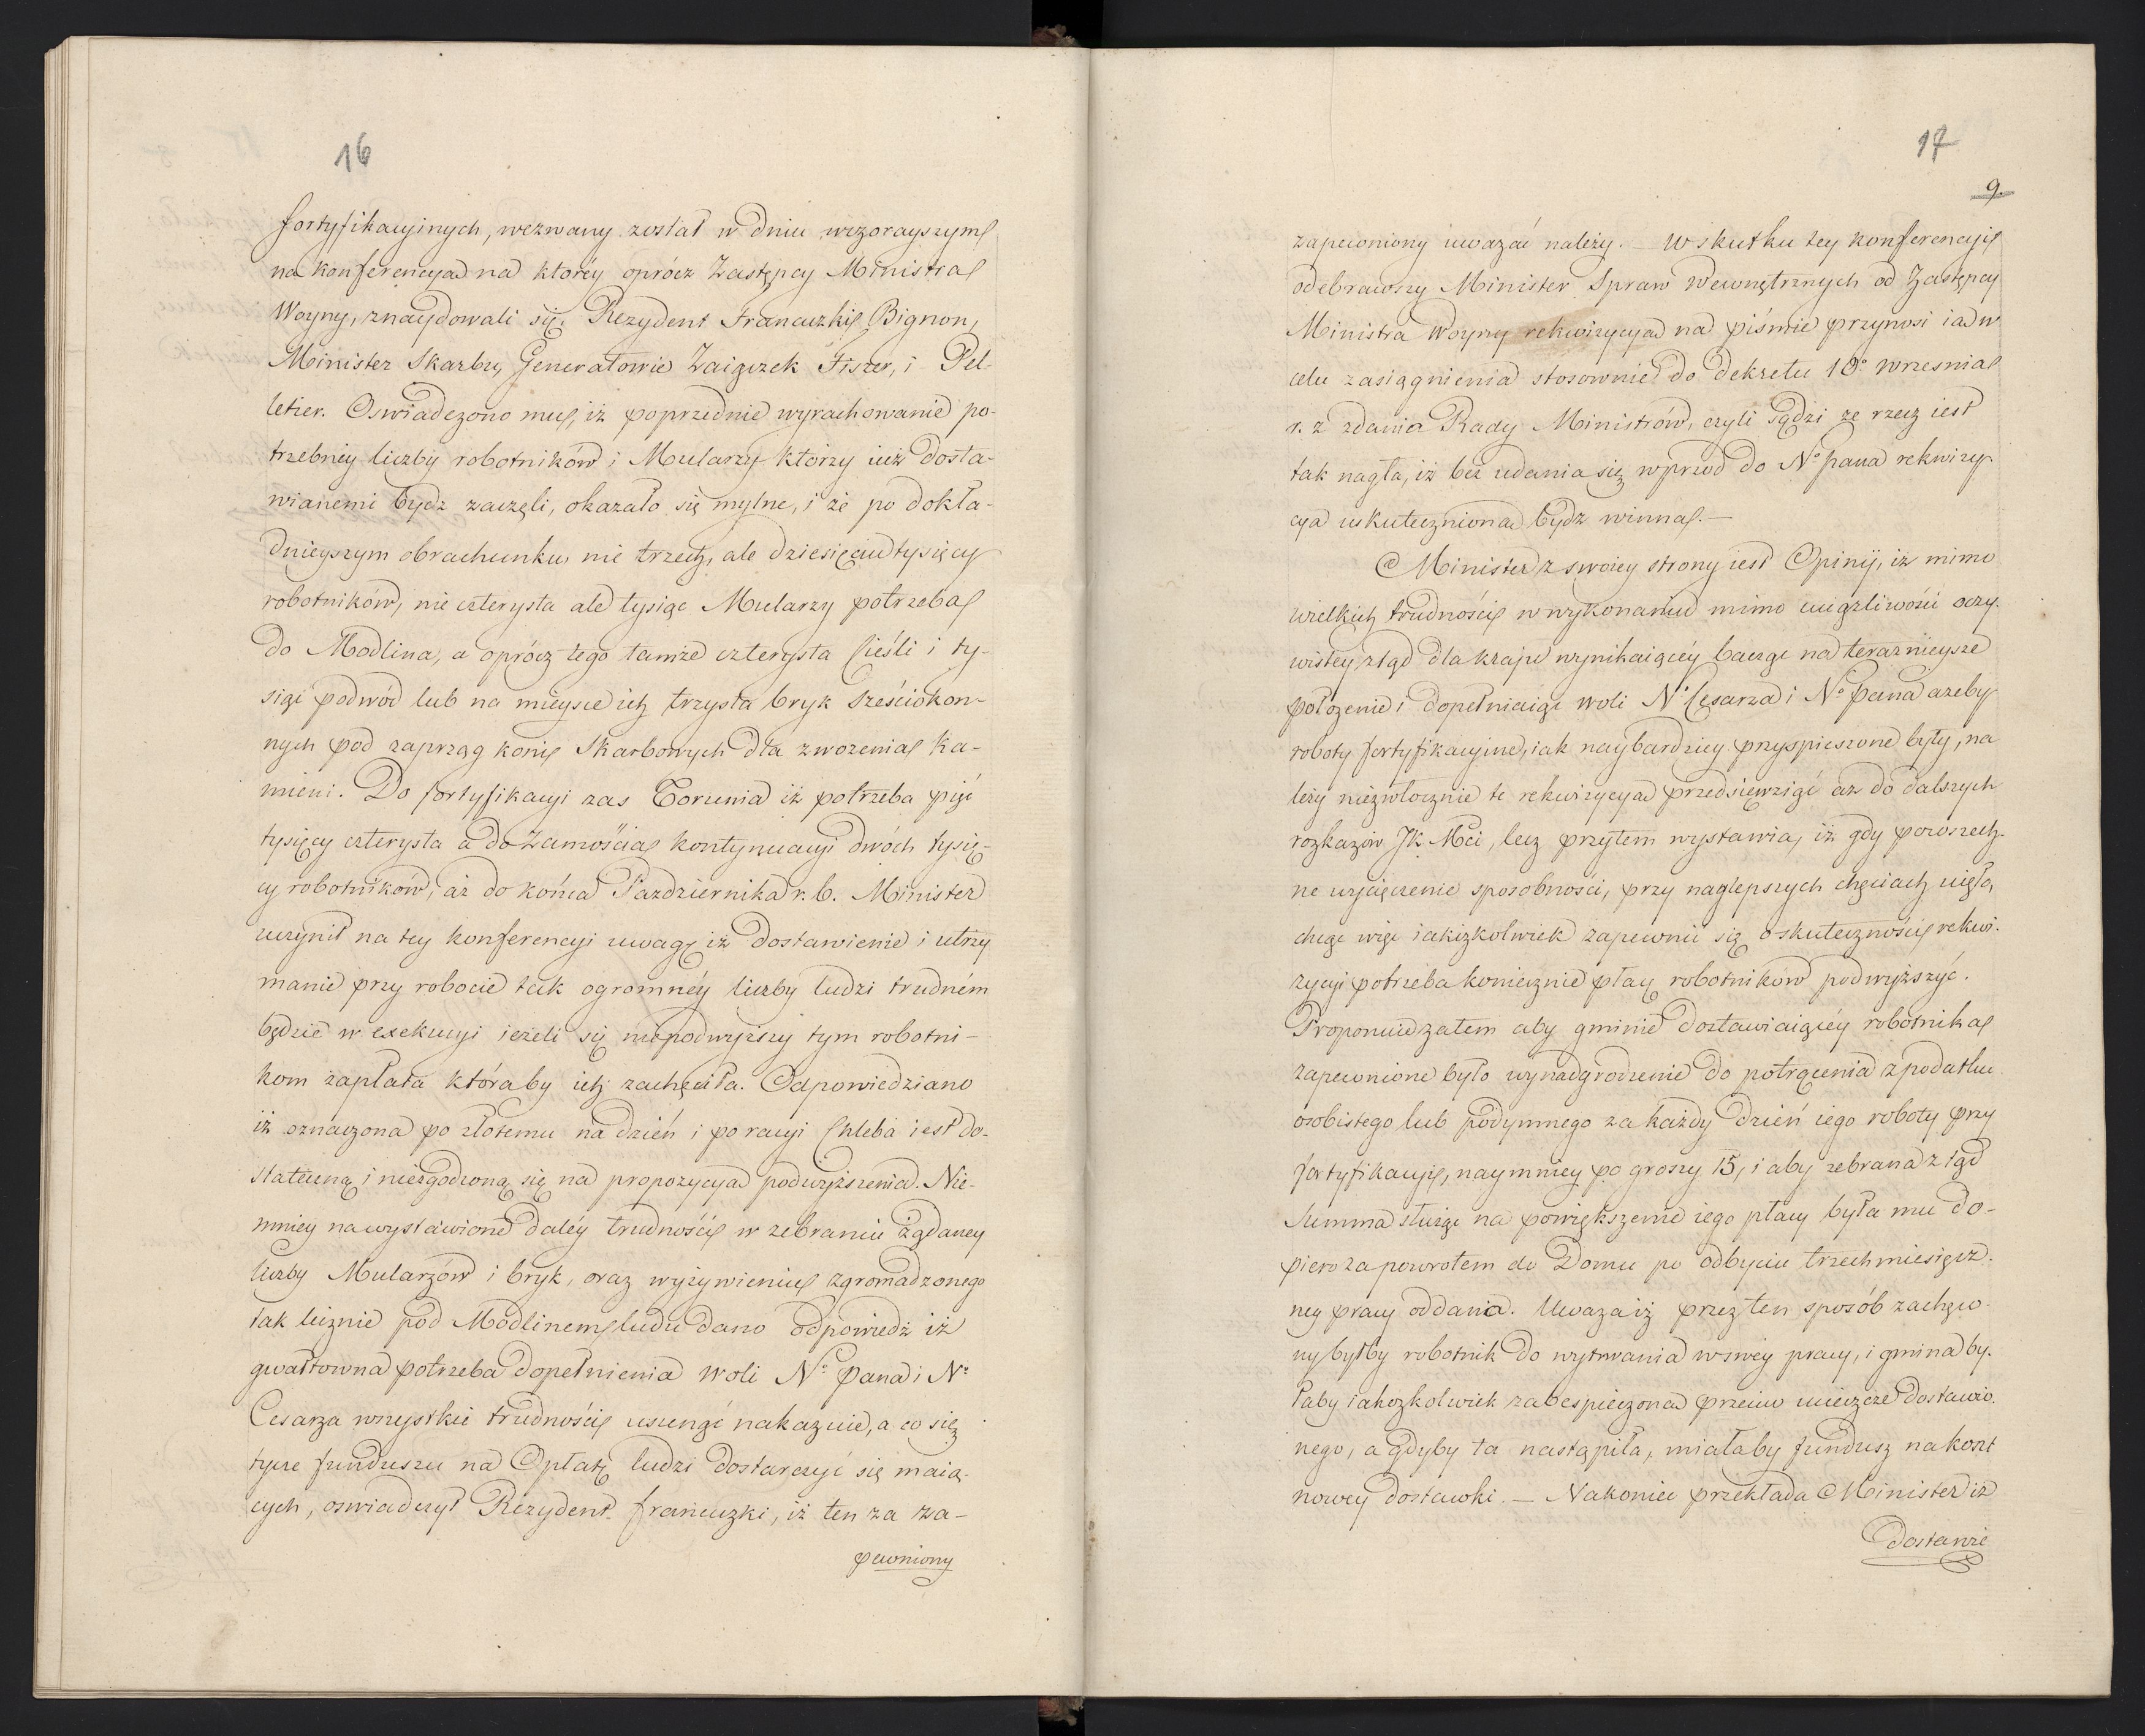 16
fortyfikacyinych, wezwany został w dniu wczorayszym
na konferencya na ktoréy oprócz Zastępcy Ministra
Woyny, znaydowali się, Rezydent Francuzki Bignon,
Minister Skarbu, Generałowie Zaiączek Fiszer, i Pel-
letier. Oswiadczono mu, iż poprzednie wyrachowanie po-
trzebnéy liczby robotników i Mularzy którzy iuż dosta-
wianemi bydz zaczęli, okazało się mylne, i że po dokła-
dnieyszym obrachunku, nie trzech, ale dziesięciu tysięcy
robotników, nie czterysta ale tysiąc Mularzy potrzeba
do Modlina, a oprócz tego tamże czterysta Cieśli i ty-
siąc podwód lub na mieysce ich trzysta bryk sześciokon-
nych pod zaprząg koni Skarbowych dla zwożenia Ka-
mieni. Do fortyfikacyi zas Torunia iż potrzeba pięć
tysięcy czterysta a do Zamościa kontynuacyi dwóch tysię-
cy robotników, aż do końca Pazdziernika r. b. Minister
uczynił na tey konferencyi uwagę iż dostawienie i utrzy
manie przy robocie tak ogromnéy liczby ludzi trudném
będzie w exekucyi ieżeli się niepodwyższy tym robotni-
kom zapłata któraby ich zachęciła. Odpowiedziano
iż oznaczona po złotemu na dzień i po racyi Chleba iest do-
stateczną i niezgodzoną się na propozycya podwyższenia. Nie-
mniey na wystawione daléy trudności w zebraniu żądaney
liczby Mularzów i bryk, oraz wyżywieniu zgromadzonego
tak licznie pod Modlinem ludu dano odpowiedz iż
gwałtowna potrzeba dopełnienia woli N° Pana i N°
Cesarza wszystkie trudności usunąć nakazuie, a co się
tycze funduszu na Opłatę ludzi dostarczyć się maią-
cych, oswiadczył Rezydent francuzki, iż ten za za-
pewniony
17
9.
zapewniony uważać należy. — W skutku tey konferencyi
odebrawszy Minister Spraw Wewnętrznych od Zastępcy
Ministra Woyny rekwizycya na piśmie przynosi ia w
celu zasiągnienia stosownie do dekretu 10° wrzesnia
r. z zdania Rady Ministrów, czyli sądzi że rzecz iest
tak nagła, iż bez udania się wprzod do N° pana rekwizy
cya uskuteczniona bydz winna. —
Minister z swoiey strony iest Opinij, iż mimo
wielkich trudności w wykonaniu mimo uciążliwości oczy-
wistey ztąd dla kraju wynikaiącéy bacząc na teraznieysze
położenie i dopełniaiąc woli N° Cesarza i N° Pana azeby
roboty fortyfikacyine, iak naybardziey przyspieszone były, na
leży niezwłocznie te rekwizycya przedsięwziąć aż do dalszych
rozkazów Jk Mci, lecz przytem wystawia, iż gdy powszech-
ne wycięczenie sposobności, przy naylepszych chęciach ciężo,
chcąc więc iakizkolwiek zapewnić się o skuteczności rekwi-
zycyi potrzeba koniecznie płacę robotników podwyższyć.
Proponuie zatem aby gminie dostawiaiącéy robotnika
zapewnione było wynadgrodzenie do potrącenia z podatku
osobistego lub podymnego za każdy dzień iego roboty przy
fortyfikacyi, naymniey po groszy 15, i aby zebrana ztąd
Summa służąc na powiększenie iego płacy była mu do-
piero za powrotem do Domu po odbyciu trzechmiesięcz-
ney pracy oddana. Uważa iż przez ten sposób zachęco-
ny byłby robotnik do wytrwania w swéy pracy, i gmina by-
łaby iakozkolwiek zabespieczona przeciw ucieczce dostawio-
nego, a gdyby ta nastąpiła, miałaby fundusz na koszt
nowey dostawki. — Nakoniec przekłada Minister iż
Dostawie